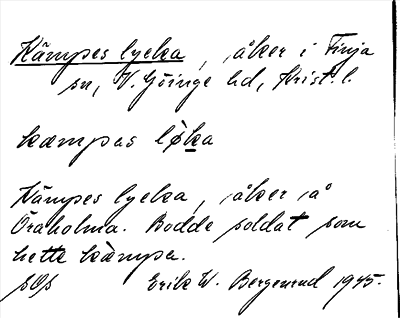 Kämpes lycka, åker i Finja
sn, V. Göinge hd, Krist. l.
kæmpas løka
Kämpes lycka, åker å
Öraholma. Bodde soldat som
hette kämpa.
sOs Erik W. Bergenrud 1945.